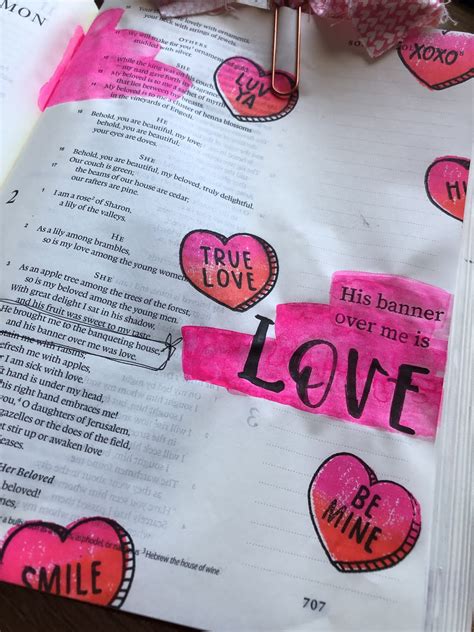 MON
your cheeks are lovely with ornaments,
your neck with strings of jewels.
OTHERS
11 We will make for you ornaments
studded with silver.
SHE
12 While the king was on his couch,
my nard gave forth its
13 My beloved is to me a sachet of myrrh
that lies between my breasts.
14 My beloved is to me a cluster of henna blossoms
in the vineyards of Engedi.
HE
15 Behold, you are beautiful, my love;
behold, you are beautiful;
your eyes are doves.
SHE
16 Behold, you are beautiful, my beloved, truly delightful.
Our couch is green;
17 the beams of our house are cedar;
our rafters are pine.
2
I am a rose of Sharon,
a lily of the valleys.
HE
2 As a lily among brambles,
so is my love among the young women.
SHE
3 As an apple tree among the trees of the forest,
so is my beloved among the young men.
With great delight I sat in his shadow,
and his fruit was sweet to my taste.
He brought me to the banqueting house,
and his banner over me was love.
stain me with raisins,
refresh me with apples,
I am sick with love.
hand is under my head,
his right hand embraces me!
you, O daughters of Jerusalem,
gazelles or the does of the field,
stir up or awaken love
Her Beloved
beloved!
3 Hebrew the house of wine
LUV
YA
XOXO
TRUE
LOVE
His banner
over me is
LOVE
BE
MINE
SMILE
707